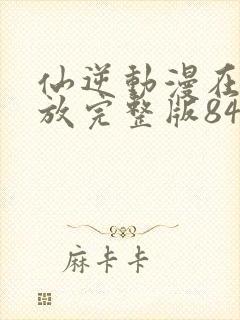 仙逆動漫在
放完整版84
麻卡卡